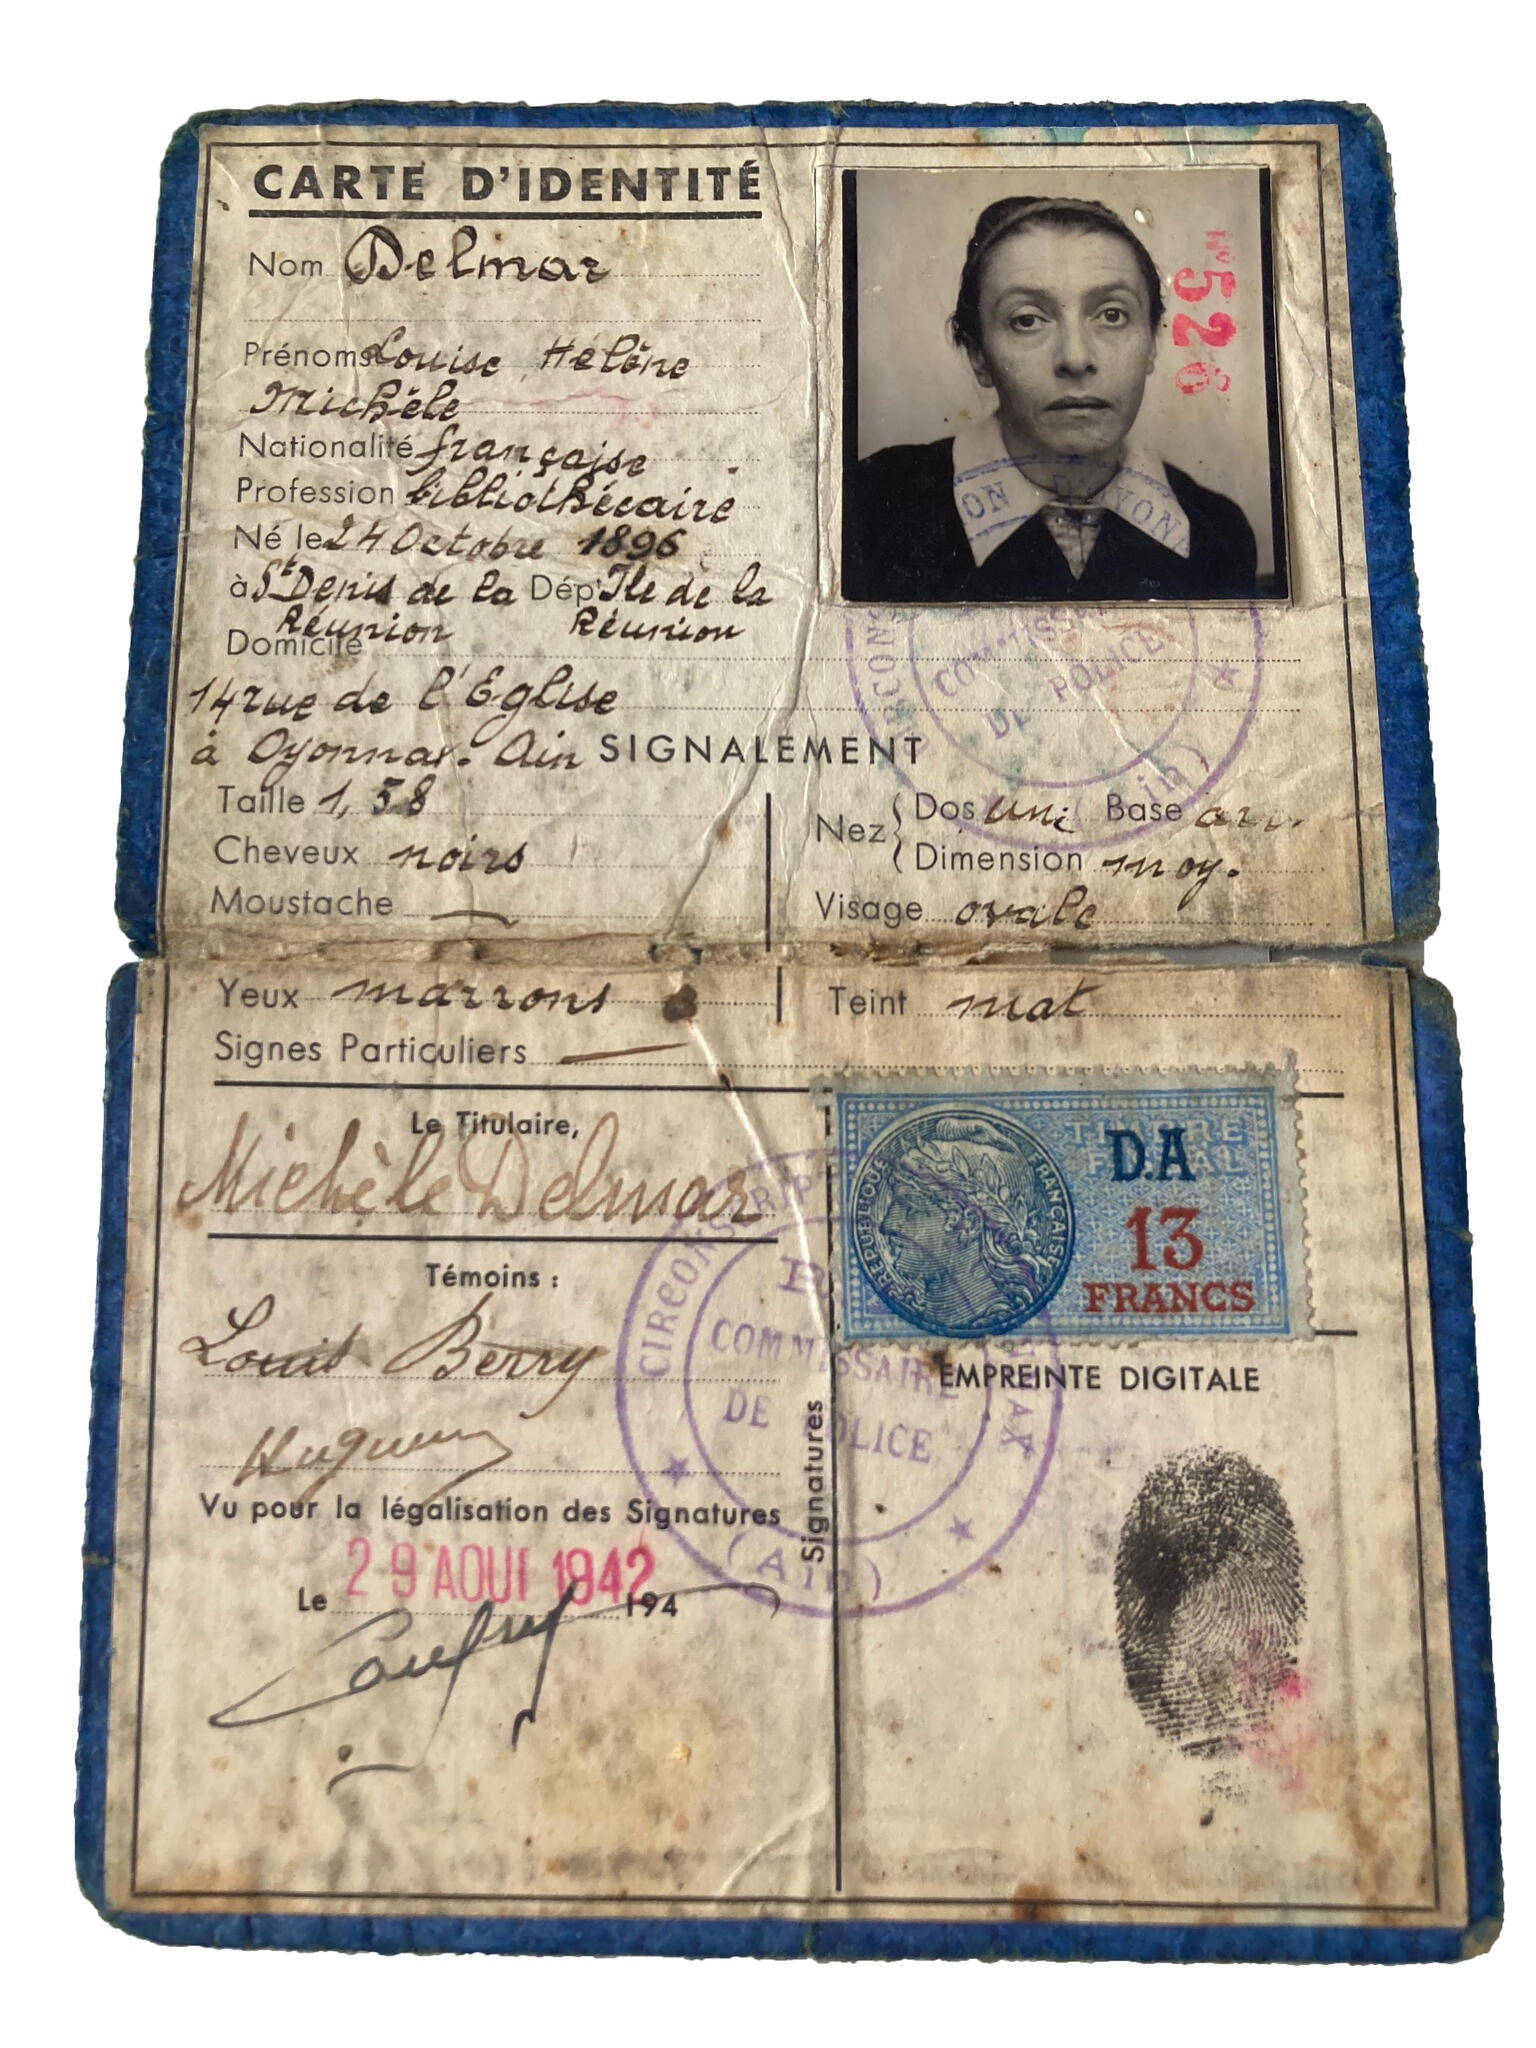 CARTE D'IDENTITÉ
Nom Delmar
Prénoms Louise Hélène
Michèle
Nationalité française
Profession bibliothécaire
Né le 24 Octobre 1896
à St Denis de la Réunion Dépt Ile de la Réunion
Domicile
14 rue de l'Eglise
à Oyonnax. Ain
SIGNALEMENT
Taille 1,58
Cheveux noirs
Moustache —
Nez Dos uni Base
Dimension moy.
Visage ovale
Yeux marrons
Teint mat
Signes Particuliers —
Nº 526
ON D'OYONN
CIRCONS
COMMISSA
DE POLICE
(Ain)
Le Titulaire,
Michèle Delmar
Témoins :
Louis Berry
Vu pour la légalisation des Signatures
Le 29 AOUT 1942 194
Signatures
CIRCONSCRIP NAX
COMMISSAIRE
DE POLICE
(Ain)
TIMBRE FISCAL
D.A
13
FRANCS
REPUBLIQUE FRANÇAISE
EMPREINTE DIGITALE